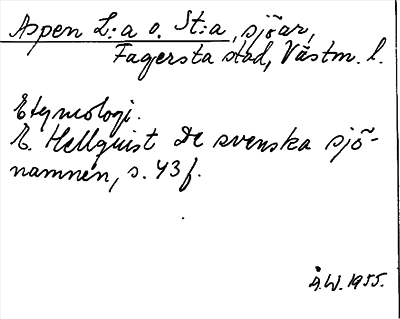 Aspen L:a o. St:a, sjöar,
Fagersta stad, Västm. l.
Etymologi.
E. Hellquist De svenska sjö-
namnen, s. 43 f.
Å.W. 1955.